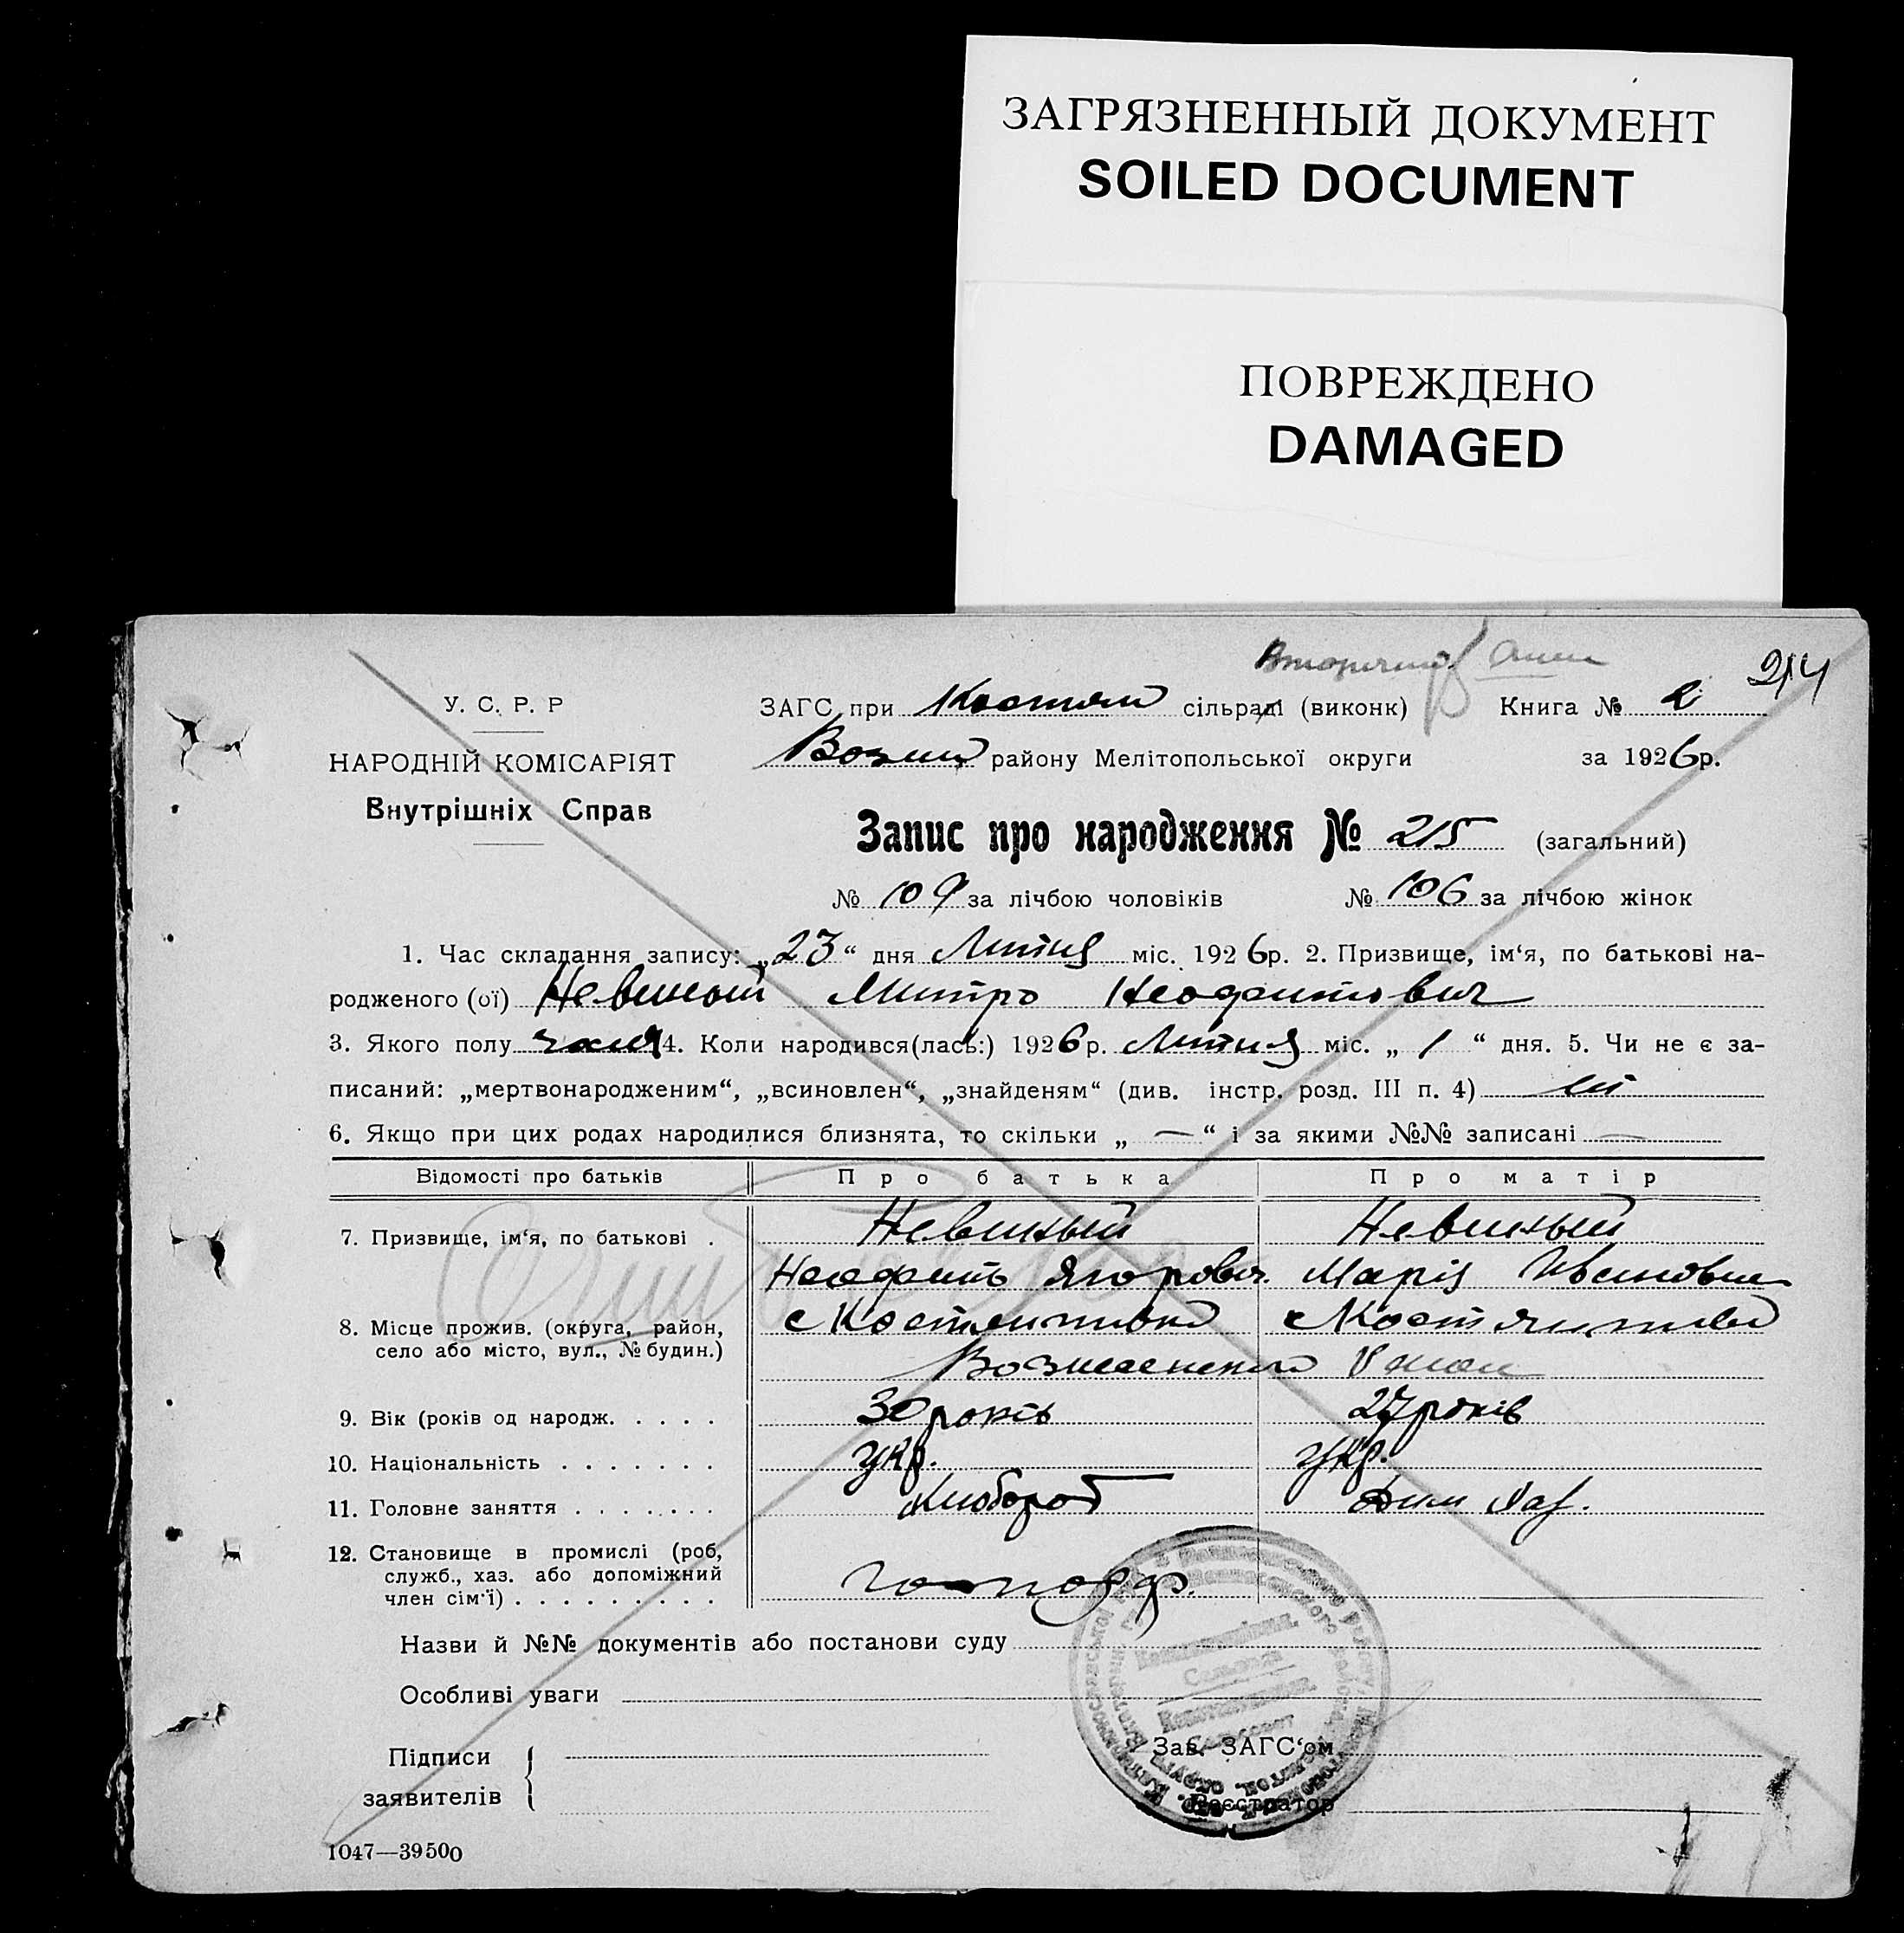 ЗАГРЯЗНЕННЫЙ ДОКУМЕНТ
SOILED DOCUMENT
ПОВРЕЖДЕНО
DAMAGED
214
У. С. Р. Р
ЗАГС при Костян сільраді (виконк) Книга № 2
НАРОДНІЙ КОМІСАРІЯТ
Возниц району Мелітопольської округи за 1926р.
Внутрішніх Справ
Запис про народження № 215 (загальний)
№ 109 за лічбою чоловіків № 106 за лічбою жінок
1. Час складання запису: „23“ дня Липня міс. 1926р. 2. Призвище, ім‘я, по батькові на-
родженого (ої) Митро
3. Якого полу 4. Коли народився(лась:) 1926р. Липня міс. „ 1 “ дня. 5. Чи не є за-
писаний: „мертвонародженим“, „всиновлен“, „знайденям“ (див. інстр. розд. III п. 4) ні
6. Якщо при цих родах народилися близнята, то скільки „ — “ і за якими №№ записані —
Відомості про батьків Про батька Про матір
7. Призвище, ім‘я, по батькові . Невинный Невинный
Ягорович Марія Ивановна
8. Місце прожив. (округа, район,
село або місто, вул., № будин.)
с Костянтиновка с Костянтиновка
9. Вік (років од народж. . . . . 30 років 27 років
10. Національність . . . . . . . укр. укр.
11. Головне заняття . . . . . . . Хлібороб Дом хаз.
12. Становище в промислі (роб,
служб., хаз. або допоміжний
член сім‘ї) . . . . . . . . .
Назви й №№ документів або постанови суду
Особливі уваги
Підписи
заявителів
Зав. ЗАГС‘ом
Реєстратор
1047—39500